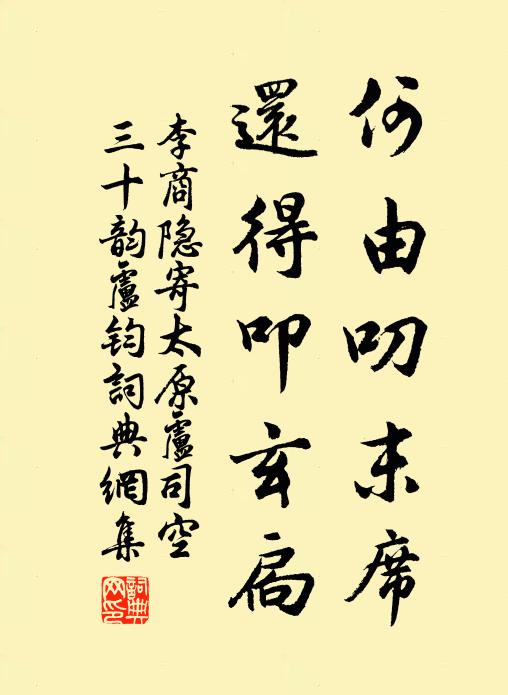 何由叨末席
還得叩玄扃
李商隐寄太原盧司空
三十韵盧钧詞典網集
詞典網印